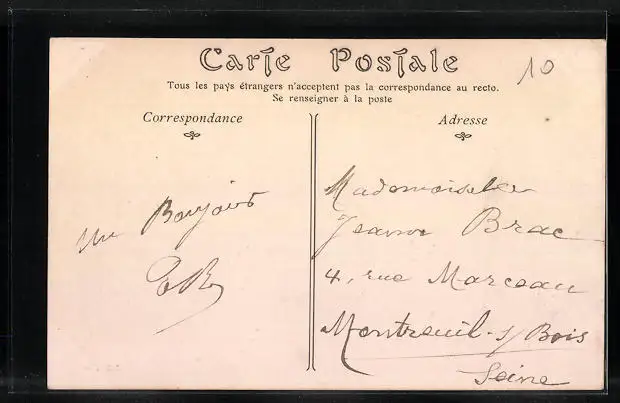 Carte Postale
10
Tous les pays étrangers n'acceptent pas la correspondance au recto.
Se renseigner à la poste
Correspondance
Un Bonjour
Adresse
Mademoiselle
Jeanne Brac
4, rue Marceau
Montreuil-s/Bois
Seine